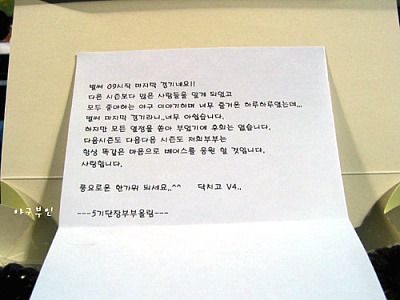 벌써 09시즌 마지막 경기네요!!
다른 시즌보다 많은 사람들을 알게 되었고
모두 좋아하는 야구 이야기하며 너무 즐거운 하루하루였는데...
벌써 마지막 경기라니..너무 아쉽습니다.
하지만 모든 열정을 쏟아 부었기에 후회는 없습니다.
다음시즌도 다음다음 시즌도 저희부부는
항상 똑같은 마음으로 베어스를 응원 할 것입니다.
사랑합니다.
풍요로운 한가위 되세요..^^ 닥치고 V4..
---5기단장부부올림---
야구부인